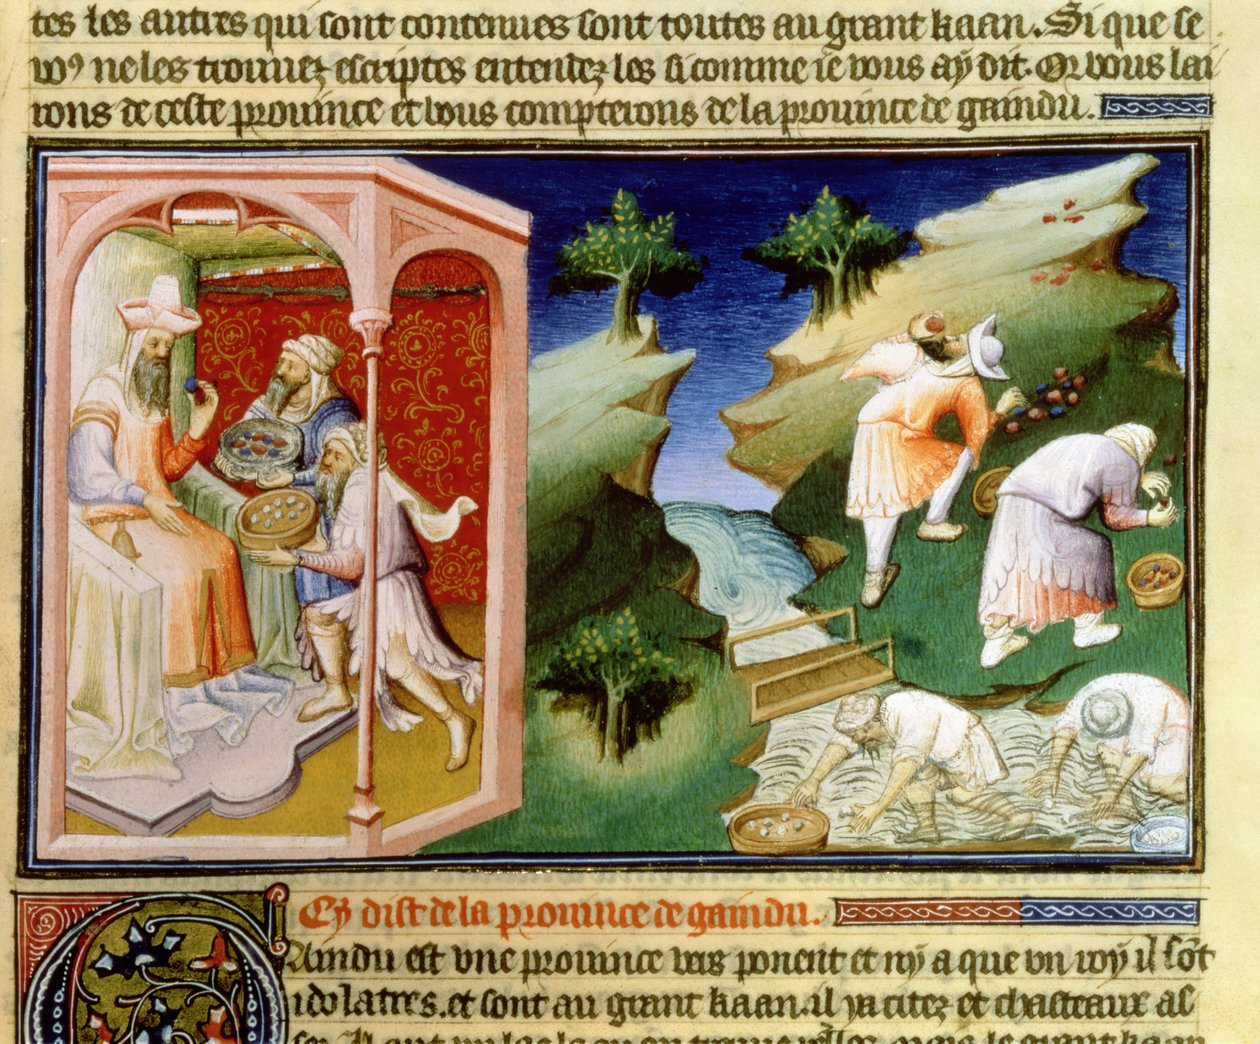 tes les autres qui sont contenues sont toutes au grant kaan. Si que se
vꝰ ne les trouuez escriptes entendez les si comme ie vous aẏ dit. Or vous lai
rons de ceste prouince et vous compterons de la prouince de gaindu.
Cẏ dist de la prouince de gaindu.
Aindu est vne prouince vers ponent et nẏ a que vn roẏ il sōt
idolatres. et sont au grant kaan. il ẏ a citez et chasteaux as